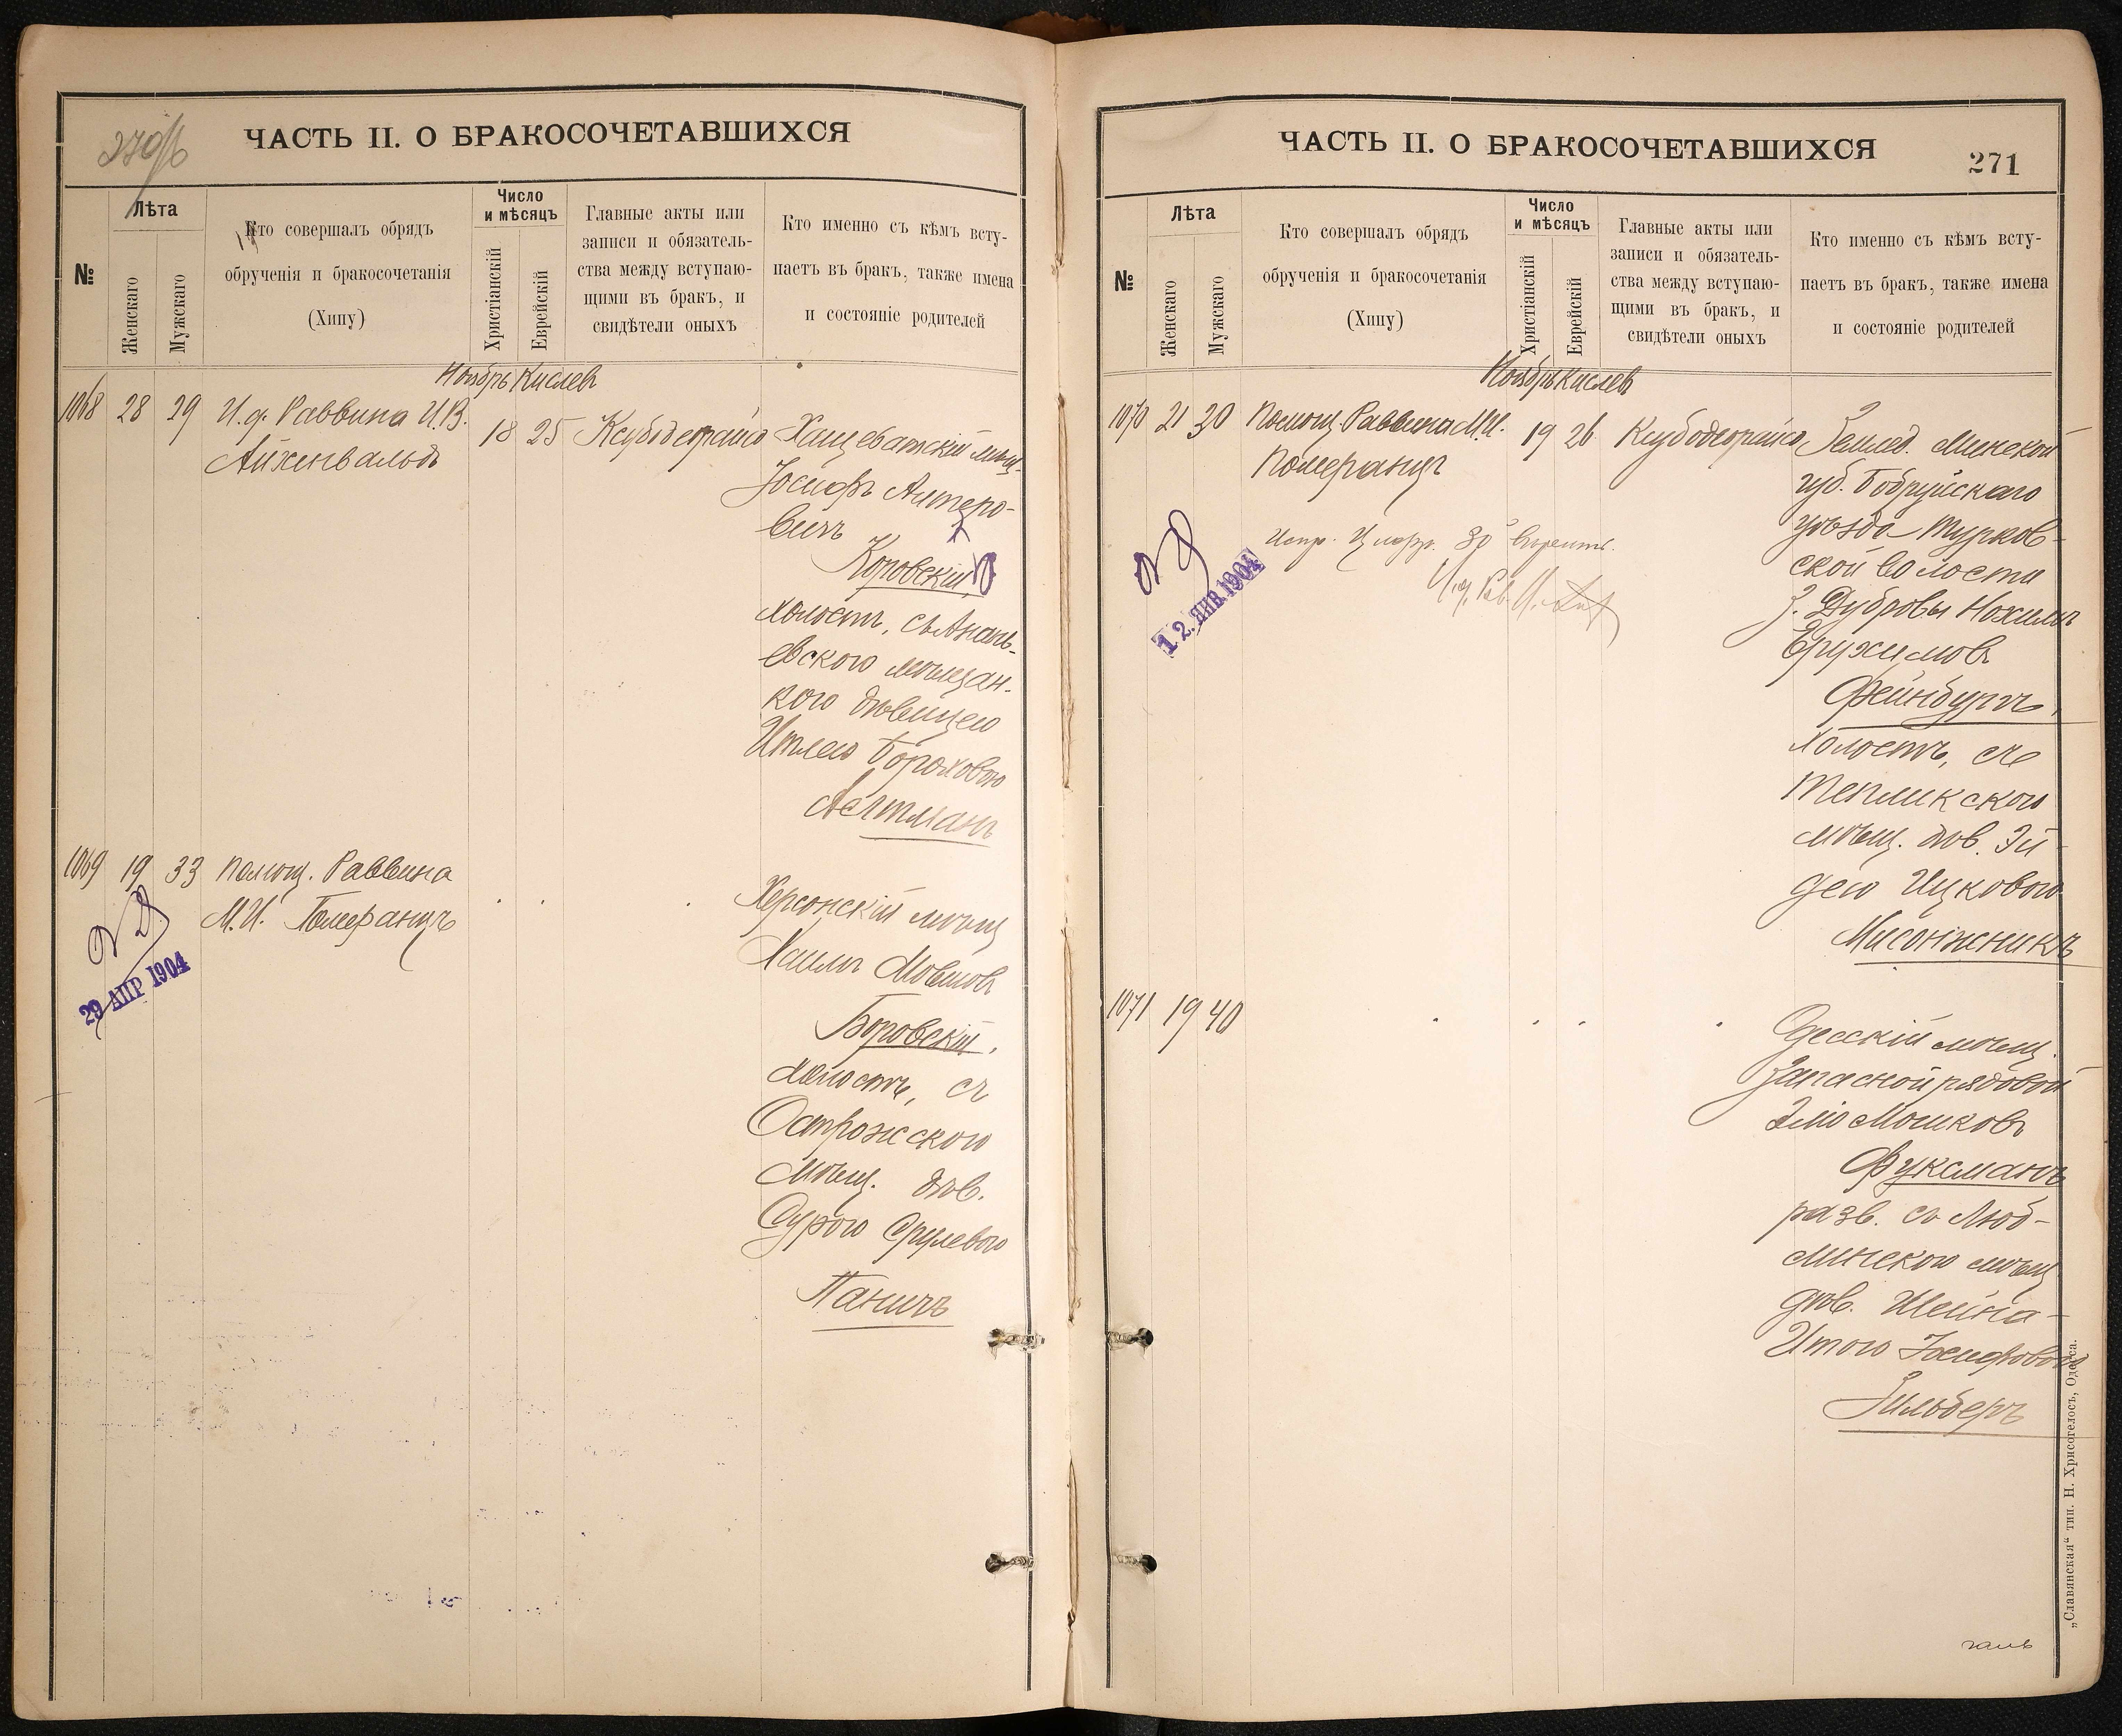 270/б
ЧАСТЬ II. О БРАКОСОЧЕТАВШИХСЯ
№
Лѣта
Женскаго
Мужскаго
Кто совершалъ обрядъ
обрученія и бракосочетанія
(Хипу)
Число
и мѣсяцъ
Христіанскій
Еврейскій
Главные акты или
записи и обязатель-
ства между вступаю-
щими въ бракъ, и
свидѣтели оныхъ
Кто именно съ кѣмъ всту-
паетъ въ бракъ, также имена
и состояніе родителей
Ноябрь Кислевъ
1068 28 29 И.д. Раввина И.В. 18 25 Ксубодеорайсо Хащеватскій мѣщ.
Айхенвальдъ
Іосифъ Алтеро-
вичъ
Коровскій,
холостъ, съ Анань-
евскою мѣщан-
кою дѣвицею
Итлею Бороховою
1069 19 33 Помощ. Раввина
М.И. Померанцъ
Херсонскій мѣщ
Хаимъ Мовшовъ
Боровскій,
холостъ, съ
Острожскою
мѣщ. дѣв.
Сурою Срулевою
Паничъ
29 АПР 1904
ЧАСТЬ II. О БРАКОСОЧЕТАВШИХСЯ
271
№
Лѣта
Женскаго
Мужскаго
Кто совершалъ обрядъ
обрученія и бракосочетанія
(Хипу)
Число
и мѣсяцъ
Христіанскій
Еврейскій
Главные акты или
записи и обязатель-
ства между вступаю-
щими въ бракъ, и
свидѣтели оныхъ
Кто именно съ кѣмъ всту-
паетъ въ бракъ, также имена
и состояніе родителей
Ноябрь Кислевъ
1070 21 30 Помощ. Раввина М.И. 19 26 Ксубодеорайсо Землед. Минской
Померанцъ
губ. Бобруйскаго
уѣзда Турков-
ской волости
з. Дубровы Нохимъ
Ерухимовъ
Фейнбургъ,
холостъ, съ
Тепликскою
мѣщ. дѣв. Эй-
дею Ицковою
Мисонжникъ
Испр. Цифр. 30 вѣрить.
И.д. Рав.
12. ЯНВ 1904
1071 19 40
Одесскій мѣщ.
Запасной рядовой
Эліо Мошковъ
Фуксманъ
разв. съ Люб-
минскою мѣщ
дѣв. Шейна-
Итою Іосифовою
Зильберъ
„Славянская“ тип. Н. Хрисогелосъ, Одесса.